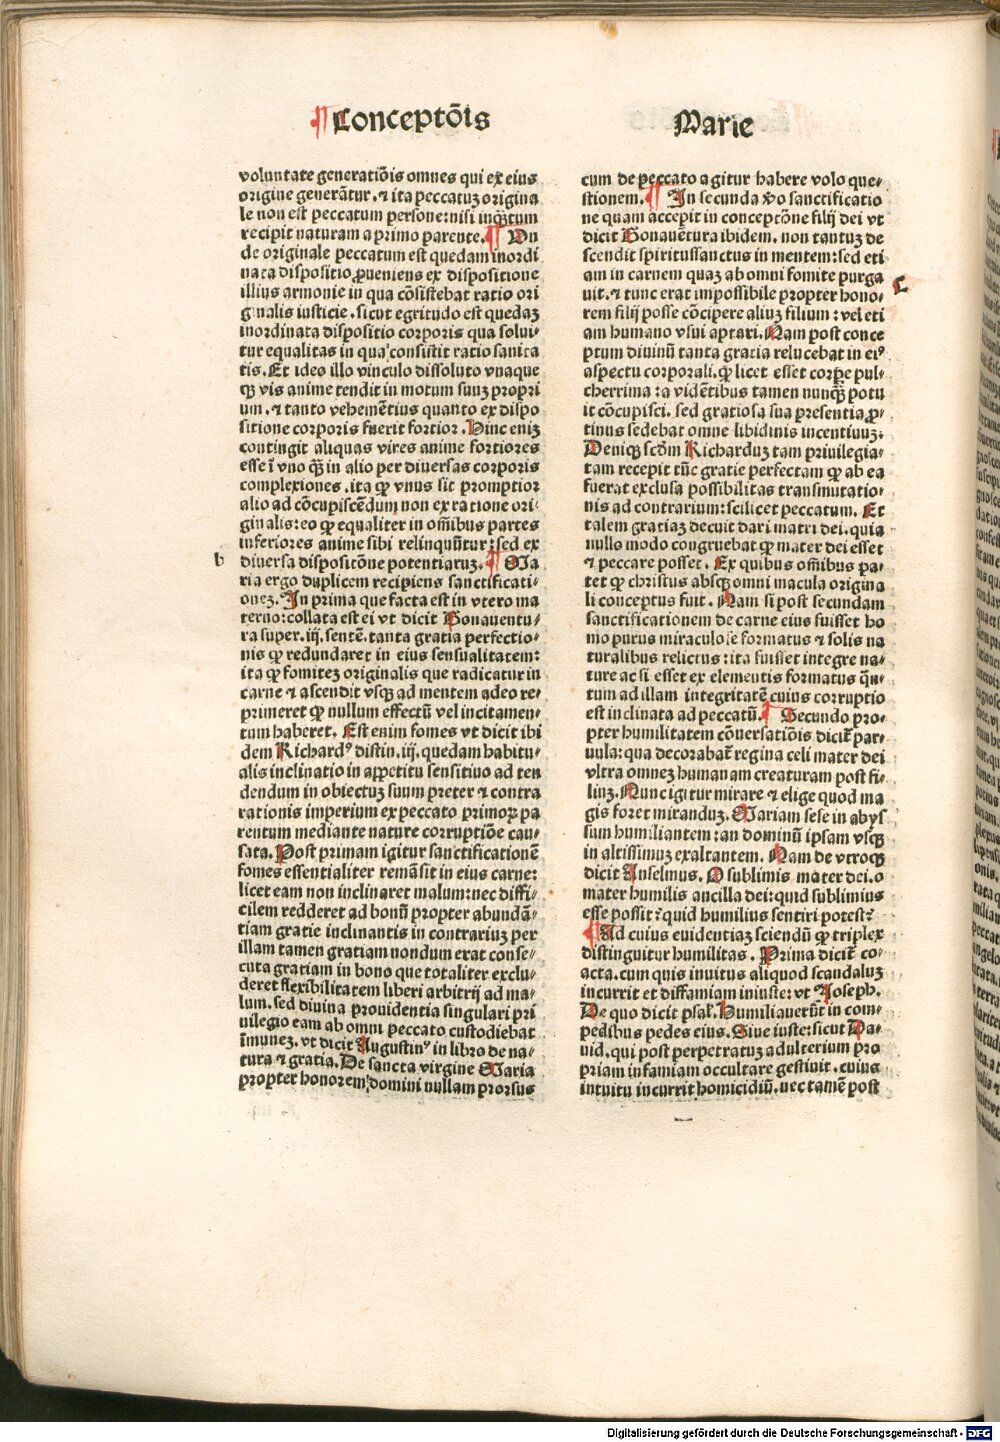 ¶Conceptōis
Marie
voluntate generatiōis omnes qui ex eius
origine generātur. ⁊ ita peccatuꝫ origina
le non est peccatum persone: nisi inqꝫtum
recipit naturam a primo parente. ¶ Vn
de originale peccatum est quedam inordi
nata dispositio ꝓueniens ex dispositione
illius armonie in qua cōsistebat ratio ori
ginalis iusticie. sicut egritudo est quedaꝫ
inordinata dispositio corporis qua solui⸗
tur equalitas in qua consistit ratio sanita
tis. Et ideo illo vinculo dissoluto vnaque
qꝫ vis anime tendit in motum suuꝫ propri
um. ⁊ tanto vehemētius quanto ex dispo
sitione corporis fuerit fortior. Hinc eniꝫ
contingit aliquas vires anime fortiores
esse ī vno qꝫ̄ in alio per diuersas corporis
complexiones. ita ꝙ vnus sit promptior
alio ad cōcupiscēdum non ex ratione ori⸗
ginalis: eo ꝙ equaliter in om̄ibus partes
inferiores anime sibi relinquūtur: sed ex
b
diuersa dispositōne potentiaruꝫ. ¶ Ma
ria ergo duplicem recipiens sanctificati⸗
oneꝫ. In prima que facta est in vtero ma
terno: collata est ei vt dicit Bonauentu⸗
ra super. iij. sentē. tanta gratia perfectio⸗
nis ꝙ redundaret in eius sensualitatem:
ita ꝙ fomiteꝫ originalis que radicatur in
carne ⁊ ascendit vsqꝫ ad mentem adeo re⸗
primeret ꝙ nullum effectū vel incitamen⸗
tum haberet. Est enim fomes vt dicit ibi
dem Richardꝰ distin. iij. quedam habitu⸗
alis inclinatio in appetitu sensitiuo ad ten
dendum in obiectuꝫ suum preter ⁊ contra
rationis imperium ex peccato primoꝝ pa
rentum mediante nature corruptiōe cau⸗
sata. Post primam igitur sanctificationē
fomes essentialiter remāsit in eius carne:
licet eam non inclinaret malum: nec diffi⸗
cilem redderet ad bonū propter abundā⸗
tiam gratie inclinantis in contrariuꝫ per
illam tamen gratiam nondum erat conse⸗
cuta gratiam in bono que totaliter exclu⸗
deret flexibilitatem liberi arbitrij ad ma⸗
lum. sed diuina prouidentia singulari pri
uilegio eam ab omni peccato custodiebat
īmuneꝫ. vt dicit Augustinꝰ in libro de na⸗
tura ⁊ gratia. De sancta virgine Maria
propter honorem domini nullam prorsus
cum de peccato agitur habere volo que⸗
stionem. ¶ In secunda v̄o sanctificatio
ne quam accepit in conceptōne filij dei vt
dicit Bonauētura ibidem. non tantuꝫ de
scendit spiritussanctus in mentem: sed eti
am in carnem quaꝫ ab omni fomite purga
C
uit. ⁊ tunc erat impossibile propter hono⸗
rem filij posse cōcipere aliuꝫ filium: vel eti
am humano vsui aptari. Nam post conce
ptum diuinū tanta gratia relucebat in eiꝰ
aspectu corporali. ꝙ licet esset corpe pul⸗
cherrima: a vidētibus tamen nunqꝫ̄ potu
it cōcupisci. sed gratiosa sua presentia ꝓ⸗
tinus sedebat omne libidinis incentiuuꝫ.
Deniqꝫ scd̄m Richarduꝫ tam priuilegia⸗
tam recepit tūc gratie perfectam ꝙ ab ea
fuerat exclusa possibilitas transmutatio⸗
nis ad contrarium: scilicet peccatum. Et
talem gratiaꝫ decuit dari matri dei. quia
nullo modo congruebat ꝙ mater dei esset
⁊ peccare posset. Ex quibus om̄ibus pa⸗
tet ꝙ christus absqꝫ omni macula origina
li conceptus fuit. Nam si post secundam
sanctificationem de carne eius fuisset ho
mo purus miraculose formatus ⁊ solis na
turalibus relictus: ita fuisset integre na⸗
ture ac si esset ex elementis formatus qn̄⸗
tum ad illam integritatē cuius corruptio
est inclinata ad peccatū. ¶ Secundo pro⸗
pter humilitatem cōuersatiōis dicit̄ par⸗
uula: qua decorabat̄ regina celi mater dei
vltra omneꝫ humanam creaturam post fi⸗
liuꝫ. Nunc igitur mirare ⁊ elige quod ma
gis foret miranduꝫ. Mariam sese in abys
sum humiliantem: an dominū ipsam vsqꝫ
in altissimuꝫ exaltantem. Nam de vtroqꝫ
dicit Anselmus. O sublimis mater dei. o
mater humilis ancilla dei: quid sublimius
esse possit? quid humilius sentiri potest?
¶ Ad cuius euidentiaꝫ sciendū ꝙ triplex
distinguitur humilitas. Prima dicit̄ co⸗
acta. cum quis inuitus aliquod scandaluꝫ
incurrit et diffamiam iniuste: vt Joseph.
De quo dicit psal̄. Humiliauerūt in com⸗
pedibus pedes eius. Siue iuste: sicut Da⸗
uid. qui post perpetratuꝫ adulterium pro
priam infamiam occultare gestiuit. cuius
intuitu incurrit homicidiū. nec tamē post
Digitalisierung gefördert durch die Deutsche Forschungsgemeinschaft - DFG